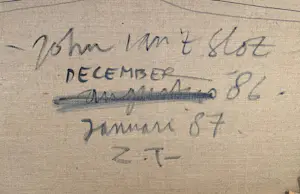 - John van 't Slot
DECEMBER
augustus 86.
Januari 87.
Z.T-